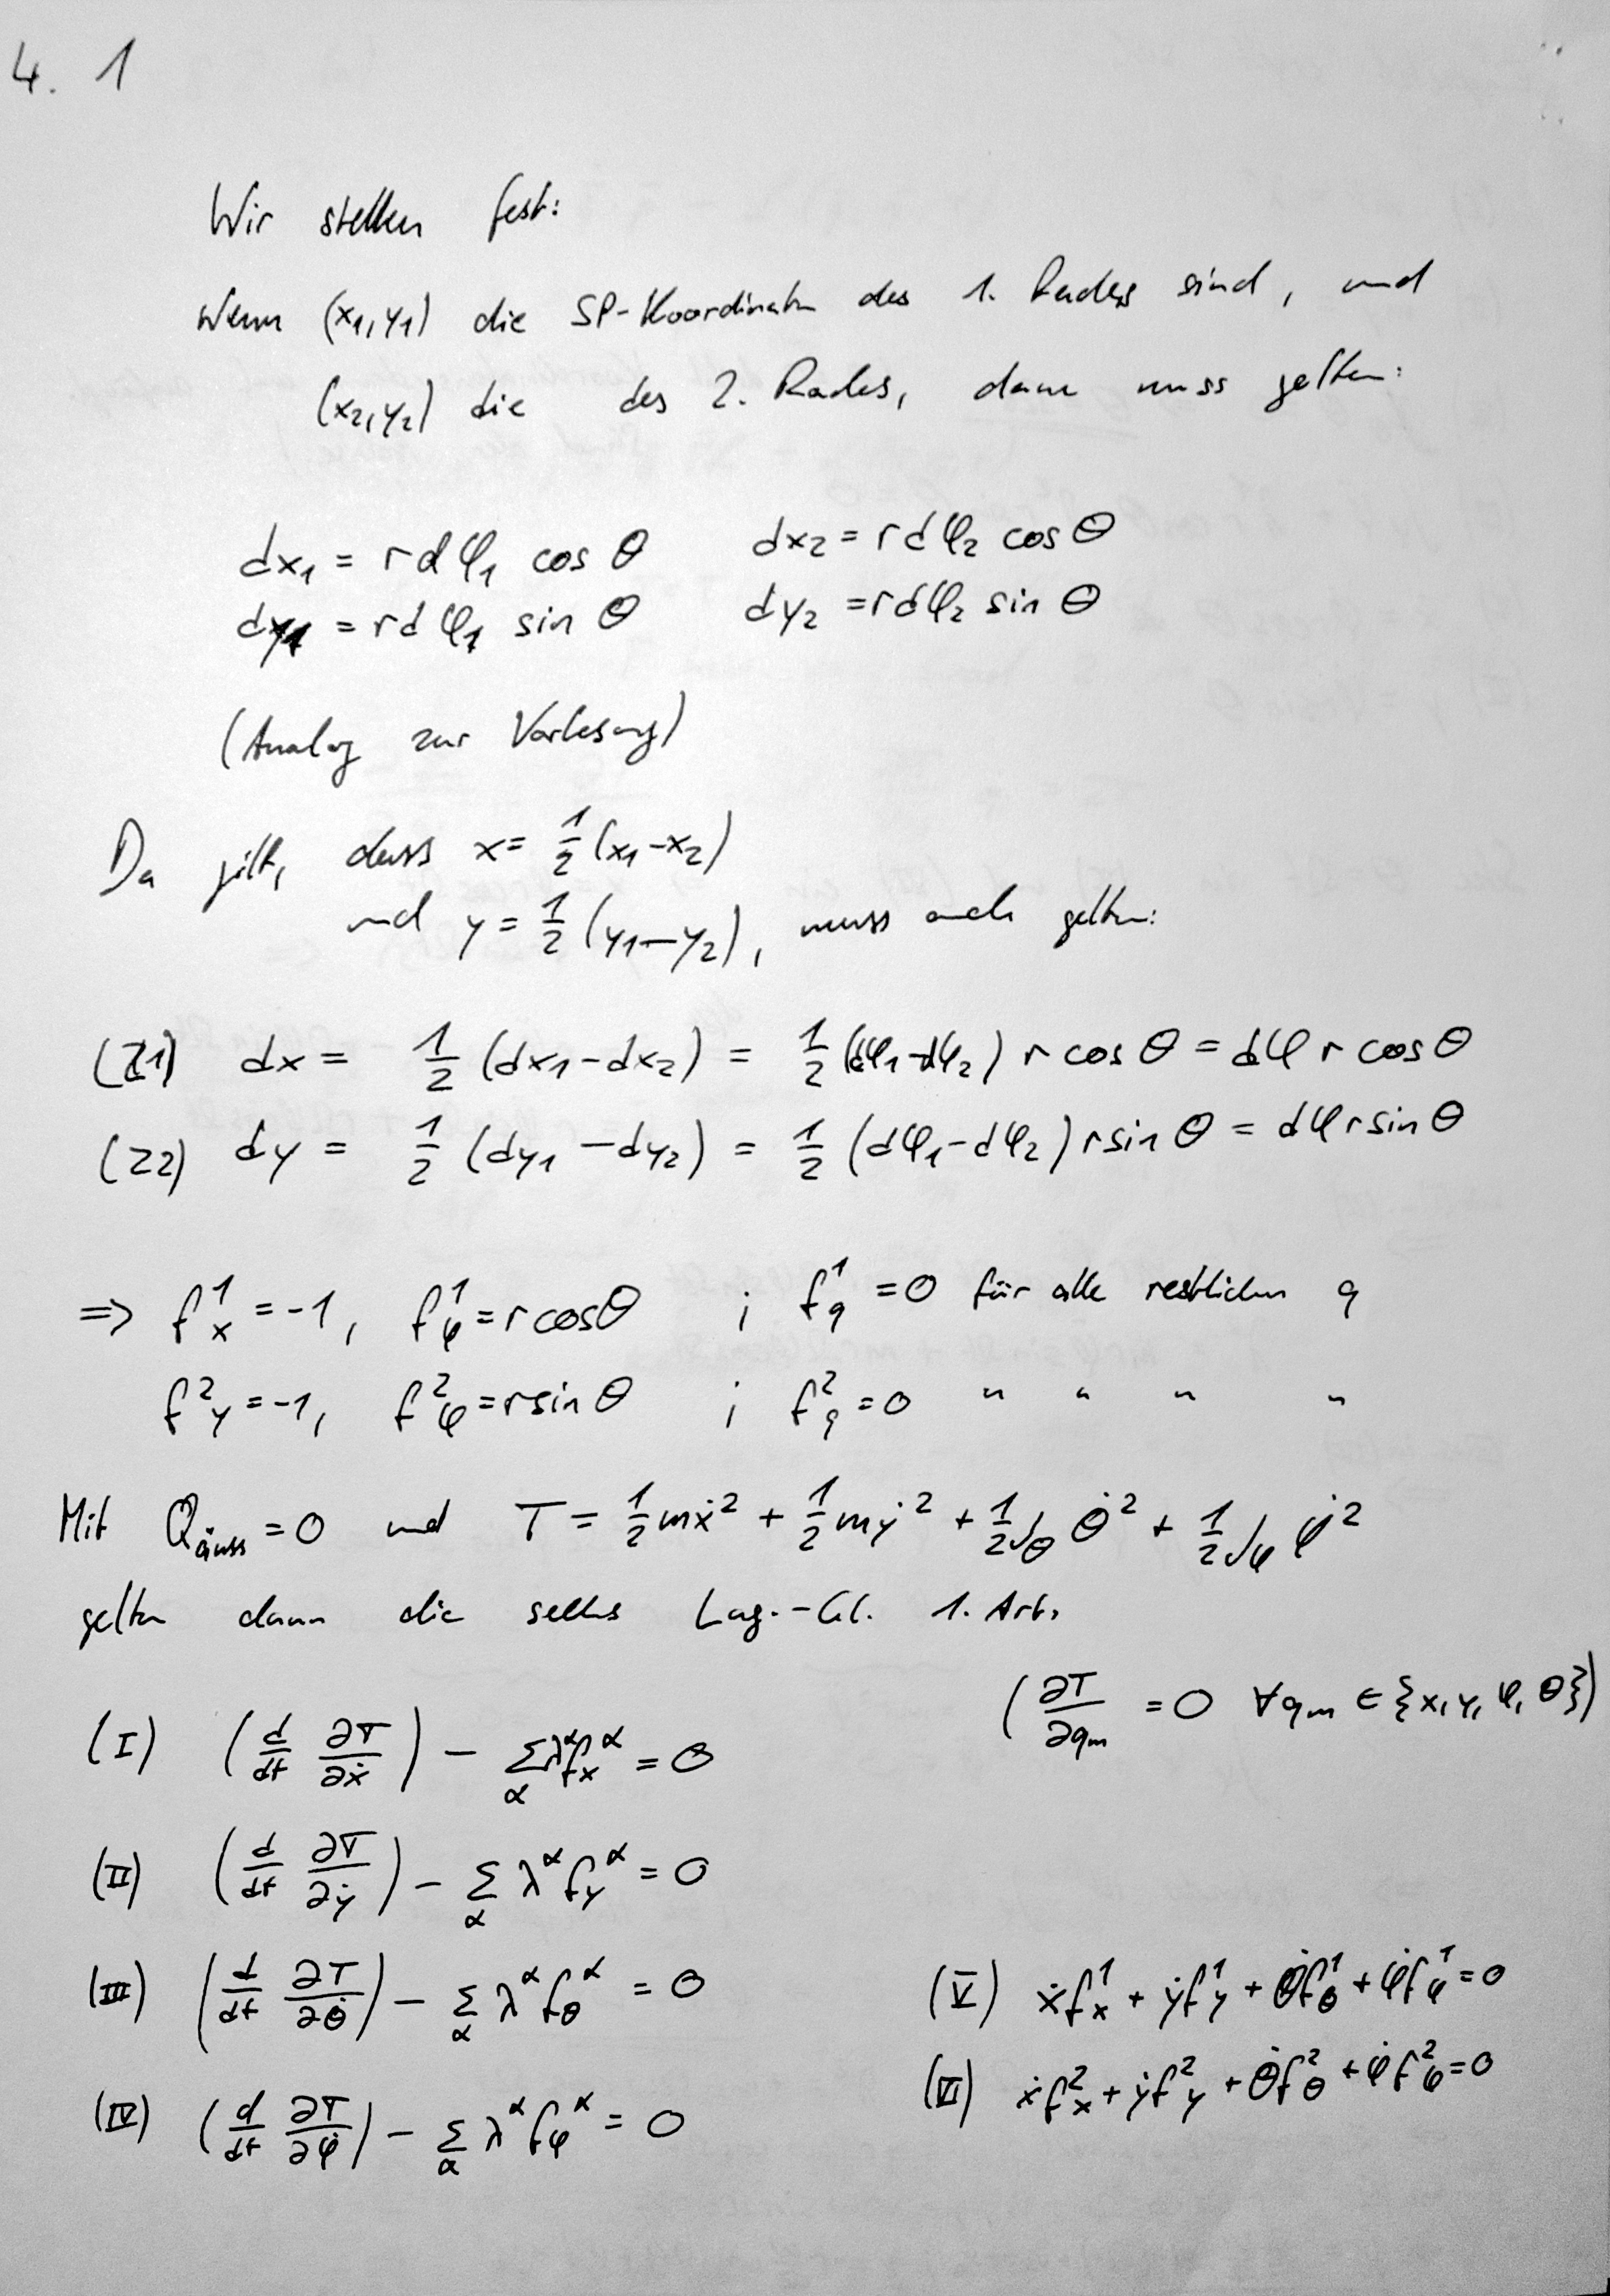 4. 1
Wir stellen fest:
Wenn (x₁,y₁) die SP-Koordinaten des 1. Rades sind, und
(x₂,y₂) die des 2. Rades, dann muss gelten:
dx₁ = r dφ₁ cos θ dx₂ = r dφ₂ cos θ
dy₁ = r dφ₁ sin θ dy₂ = r dφ₂ sin θ
(Analog zur Vorlesung)
Da gilt, dass x = 1/2 (x₁-x₂)
und y = 1/2 (y₁-y₂), muss auch gelten:
(Z1) dx = 1/2 (dx₁-dx₂) = 1/2 (dφ₁-dφ₂) r cos θ = dφ r cos θ
(Z2) dy = 1/2 (dy₁-dy₂) = 1/2 (dφ₁-dφ₂) r sin θ = dφ r sin θ
⇒ f¹ₓ = -1, f¹_φ = r cos θ ; f¹_q = 0 für alle restlichen q
f²_y = -1, f²_φ = r sin θ ; f²_q = 0 " " " "
Mit Q_äuss = 0 und T = 1/2 mẋ² + 1/2 mẏ² + 1/2 J_θ θ̇² + 1/2 J_φ φ̇²
gelten dann die sechs Lag.-Gl. 1. Art.
(∂T/∂q_m = 0 ∀q_m ∈ {x, y, φ, θ})
(I) (d/dt ∂T/∂ẋ) - Σ_α λ^α f_x^α = 0
(II) (d/dt ∂T/∂ẏ) - Σ_α λ^α f_y^α = 0
(III) (d/dt ∂T/∂θ̇) - Σ_α λ^α f_θ^α = 0
(IV) (d/dt ∂T/∂φ̇) - Σ_α λ^α f_φ^α = 0
(V) ẋf¹_x + ẏf¹_y + θ̇f¹_θ + φ̇f¹_φ = 0
(VI) ẋf²_x + ẏf²_y + θ̇f²_θ + φ̇f²_φ = 0